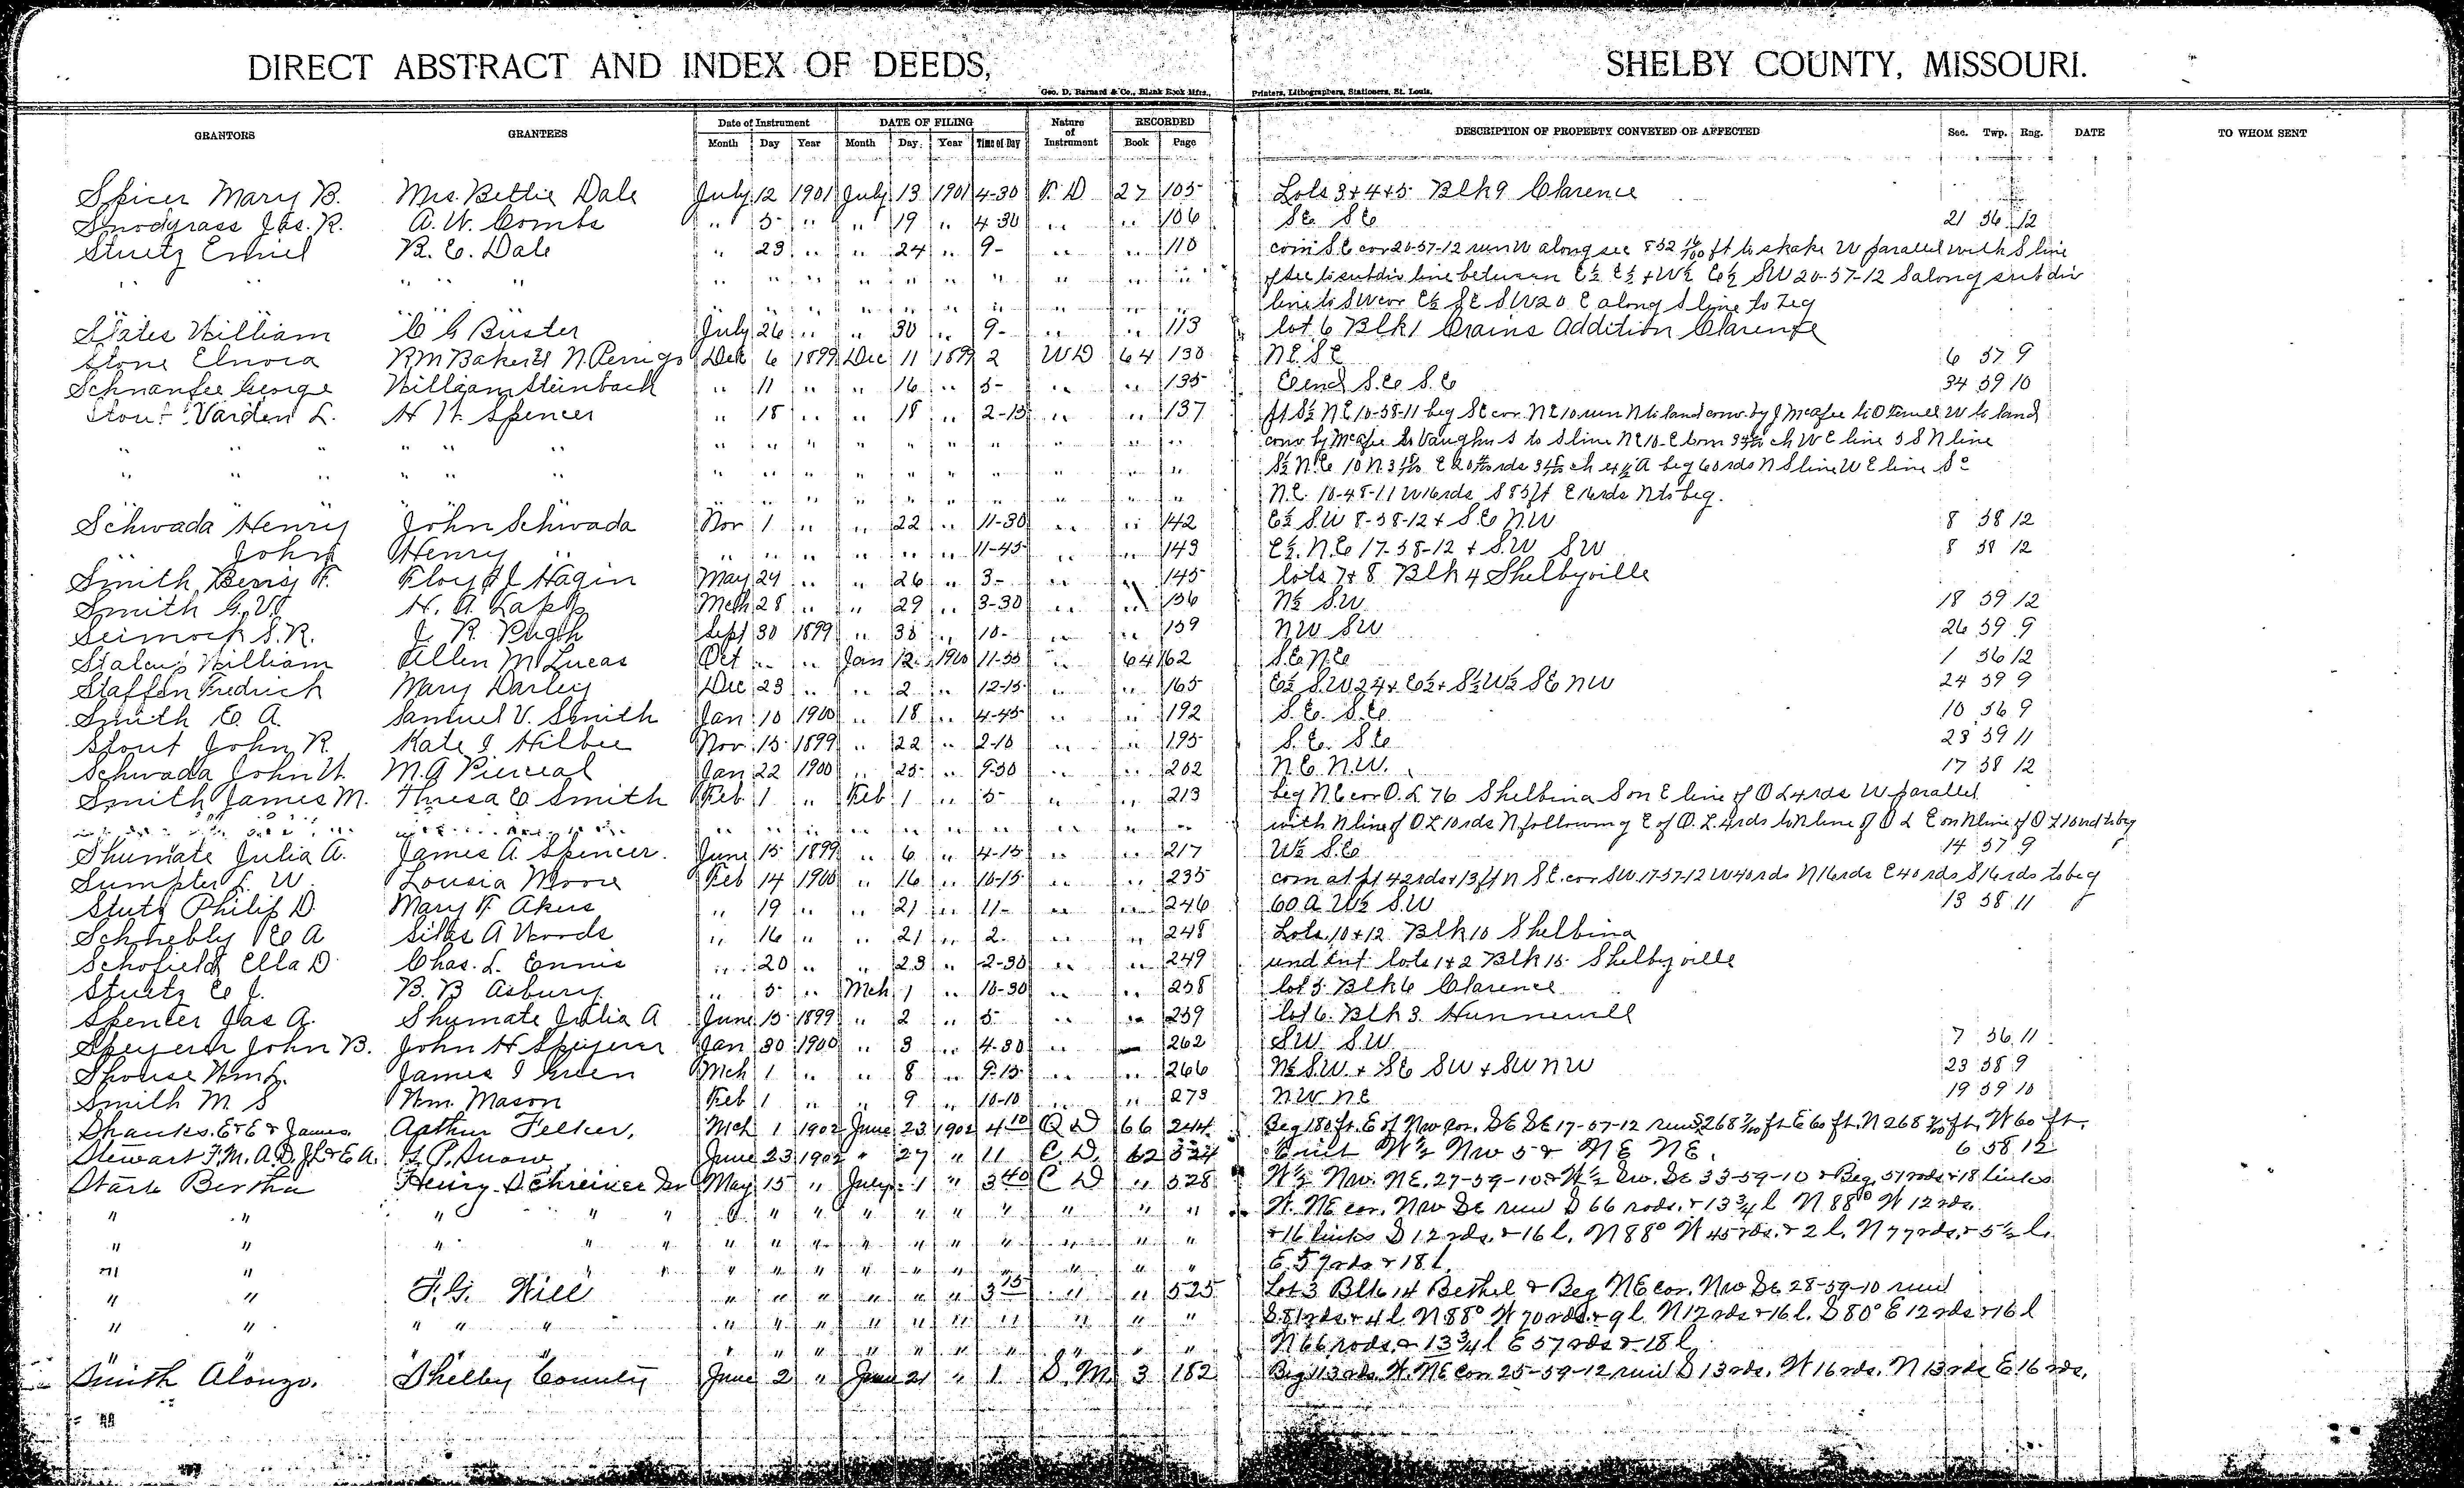 DIRECT ABSTRACT AND INDEX OF DEEDS, SHELBY COUNTY, MISSOURI.
Geo. D. Barnard & Co., Blank Book Mfrs., Printers, Lithographers, Stationers, St. Louis.
GRANTORS GRANTEES Date of Instrument DATE OF FILING Nature of Instrument RECORDED DESCRIPTION OF PROPERTY CONVEYED OR AFFECTED Sec. Twp. Rng. DATE TO WHOM SENT
Month Day Year Month Day Year Time of Day Book Page
Spicer Mary B. Mrs. Bettie Dale July 12 1901 July 13 1901 4-30 T. D 27 105 Lots 3+4+5 Blk 9 Clarence
Snodgrass Jas. R. A. W. Combs " 5 " " 19 " 4-30 " " 106 SE SE 21 56 12
Stuetz Emiel R. E. Dale " 23 " " 24 " 9- " " 110 com S.E cor 20-57-12 run W along sec 852 16/100 ft to stake W parallel with S line
" " " " " " " " " " " " " of sec to subdiv line between E½ E½ + W½ E½ SW 20-57-12 S along subdiv
" " " " " " " " " " " " line to SW cor E½ SE SW 20 E along S line to beg
States William C G Buster July 26 " " 30 " 9- " " 113 lot 6 Blk 1 Crains Addition Clarence
Stone Elnora RM Baker & N. Perrigo Dec 6 1899 Dec 11 1899 2 WD 64 130 N.E. S.E 6 57 9
Schnanfee George William Steinbach " 11 " " 16 " 5- " " 135 E end S.E S.E 34 59 10
Stout Varden L. H H Spencer " 18 " " 18 " 2-15 " " 137 pt S½ N.E 10-58-11 beg SE cor NE 10 run N to land conv. by J McAfee to W to land
" " " " " " " " " " " " " conv by McAfee to Vaughn S to S line NE 10 E W E line S N line
" " " " " " " " " " " " " S½ N.E 10 N beg 60 rds N S line W E line SE
" " " " " " " " " " N.E. 10-48-11 W 16 rds S 85 ft E 16 rds N to beg.
Schwada Henry John Schwada Nov 1 " " 22 " 11-30 " " 142 E½ S.W 8-58-12 + S.E N.W 8 58 12
" John Henry " " " " " " " 11-45 " " 143 E½ N.E 17-58-12 + S.W SW 8 58 12
Smith Benj F. Floyd J Hagin May 24 " " 26 " 3- " " 145 lots 7+8 Blk 4 Shelbyville
Smith G.W. H. A. Lapp Mch 28 " " 29 " 3-30 " " 156 N½ S.W 18 59 12
Seimock S.R. J. R. Pugh Sept 30 1899 " 30 " 10- " " 159 NW SW 26 59 9
Staleup William Allen M Lucas Oct " " Jan 12 1900 11-55 " 64 162 S.E N.E 1 56 12
Staffen Fredrick Mary Darley Dec 23 " " 2 " 12-15 " " 165 E½ S.W 24 + E½ + S½ W½ SE NW 24 59 9
Smith E A. Samuel V. Smith Jan 10 1900 " 18 " 4-45 " " 192 S.E. S.E. 10 56 9
Stout John R Kate I Hilbee Nov 15 1899 " 22 " 2-10 " " 195 S.E. SE 23 59 11
Schwada John H. M.A Pierceal Jan 22 1900 " 25 " 9-30 " " 202 N.E. N.W. 17 58 12
Smith James M. Thresa E Smith Feb 1 " Feb 1 " 5- " " 213 beg NE cor O.L 76 Shelbina S on E line of O L 4 rds W parallel
" " " " " " " " " " " " " with N line of O L 10 rds N following E of O. L. 4 rds to N line of O L E on N line of O L 10 rd to beg
Shumate Julia A. James A Spencer. June 15 1899 " 6 " 4-15 " " 217 W½ S.E 14 57 9
Sumpter L. W. Lousia Moore Feb 14 1900 " 16 " 10-15 " " 235 com at pt 42 rds + 13 ft N S.E. cor SW. 17-57-12 W 40 rds N 16 rds E 40 rds S 16 rds to beg
Stutz Philip D. Mary F Akus " 19 " " 21 " 11- " " 246 60 A W½ S.W 13 58 11
Schnebly E A Silas A Woods " 16 " " 21 " 2- " " 248 Lots 10+12 Blk 10 Shelbina
Schofield Ella D Chas. L. Ennis " 20 " " 23 " 2-30 " " 249 und int lots 1+2 Blk 15 Shelbyville
Stuetz E J. B. B Asbury " 5 " Mch 1 " 10-30 " " 258 lot 5 Blk 6 Clarence
Spencer Jas A. Shumate Julia A June 15 1899 " 2 " 5- " " 259 lot 6 Blk 3 Hunnewell
Speyerer John B. John H Speyerer Jan 30 1900 " 3 " 4-30 " " 262 SW SW 7 56 11
Shouse Wm L. James I Green Mch 1 " " 8 " 9-15 " " 266 N½ S.W + SE SW + SW NW 23 58 9
Smith M. S Wm. Mason Feb 1 " " 9 " 10-10 " " 273 NW NE 19 59 10
Shanks. E+E + James. Arthur Felker, Mch 1 1902 June 23 1902 4 10 Q D 66 244 Beg 180 ft. E of Nw cor. SE SE 17-57-12 run S 268 7/10 ft E 60 ft. N 268 7/10 ft. W 60 ft.
Stewart F.M. A.D. J.L + E A. L. P. Snow June 23 1902 " 27 " 11 C D. 62 524 W½ Nw 5 + NE NE. 6 58 12
Stark Bertha Henry Schreiner Snr May 15 " July 1 " 3 40 C D " 528 W½ Nw. NE. 27-59-10 + W½ Sw. SE 33-59-10 + Beg. 57 rods + 18 links
" " " " " " " " " " " " " " " W. NE cor. Nw SE run S 66 rods. + 13¾ l N 88° W 12 rds.
" " " " " " " " " " " " " " " + 16 links S 12 rds. + 16 l. N 88° W 45 rds. + 2 l. N 77 rds. + 5½ l.
" " " " " " " " " " " " " " E 57 rds + 18 l.
" " F. G. Will " " " " " " 3 15 " " 525 Lot 3 Blk 14 Bethel + Beg NE cor. Nw SE 28-59-10 run
" " " " " " " " " " " " " " " S 81 rds + 4 l N 88° W 70 rds + 9 l N 12 rds + 16 l. S 80° E 12 rds + 16 l
" " " " " " " " " " " " N 66 rods. + 13¾ l E 57 rds + 18 l.
Smith Alonzo. Shelby County June 2 " June 21 " 1 S. M. 3 152 Beg 113 rds. W. NE cor 25-59-12 run S 13 rds. W 16 rds. N 13 rds E 16 rds.